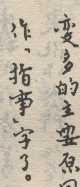 變多的主要原因
作「指事」字了。